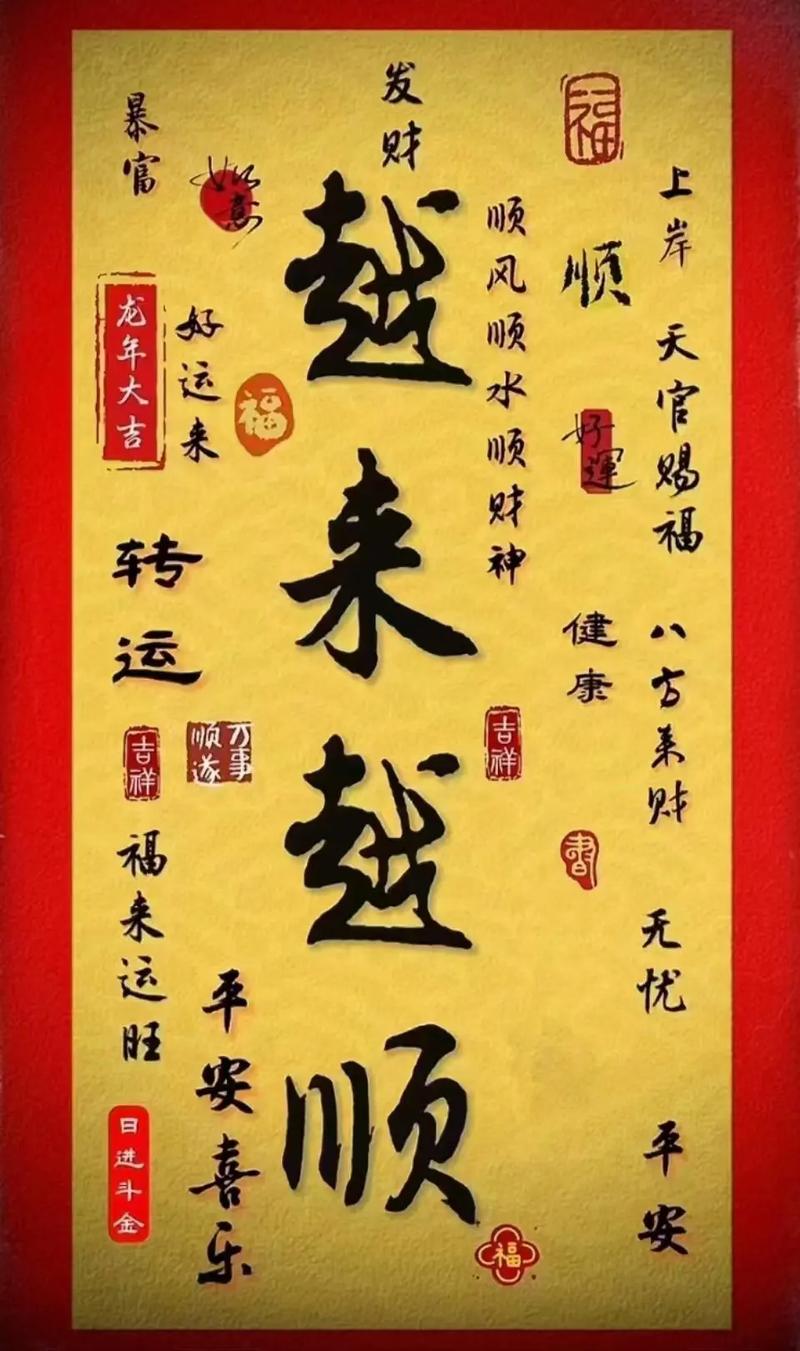 福
上岸
天官赐福
八方来财
无忧
平安
顺
好運
健康
顺风顺水顺财神
吉祥
福
发财
越来越顺
如意
福
好运来
万事
顺遂
平安喜乐
暴富
龙年大吉
转运
吉祥
福来运旺
日进斗金